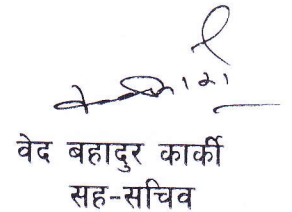 वेद बहादुर कार्की
सह-सचिव